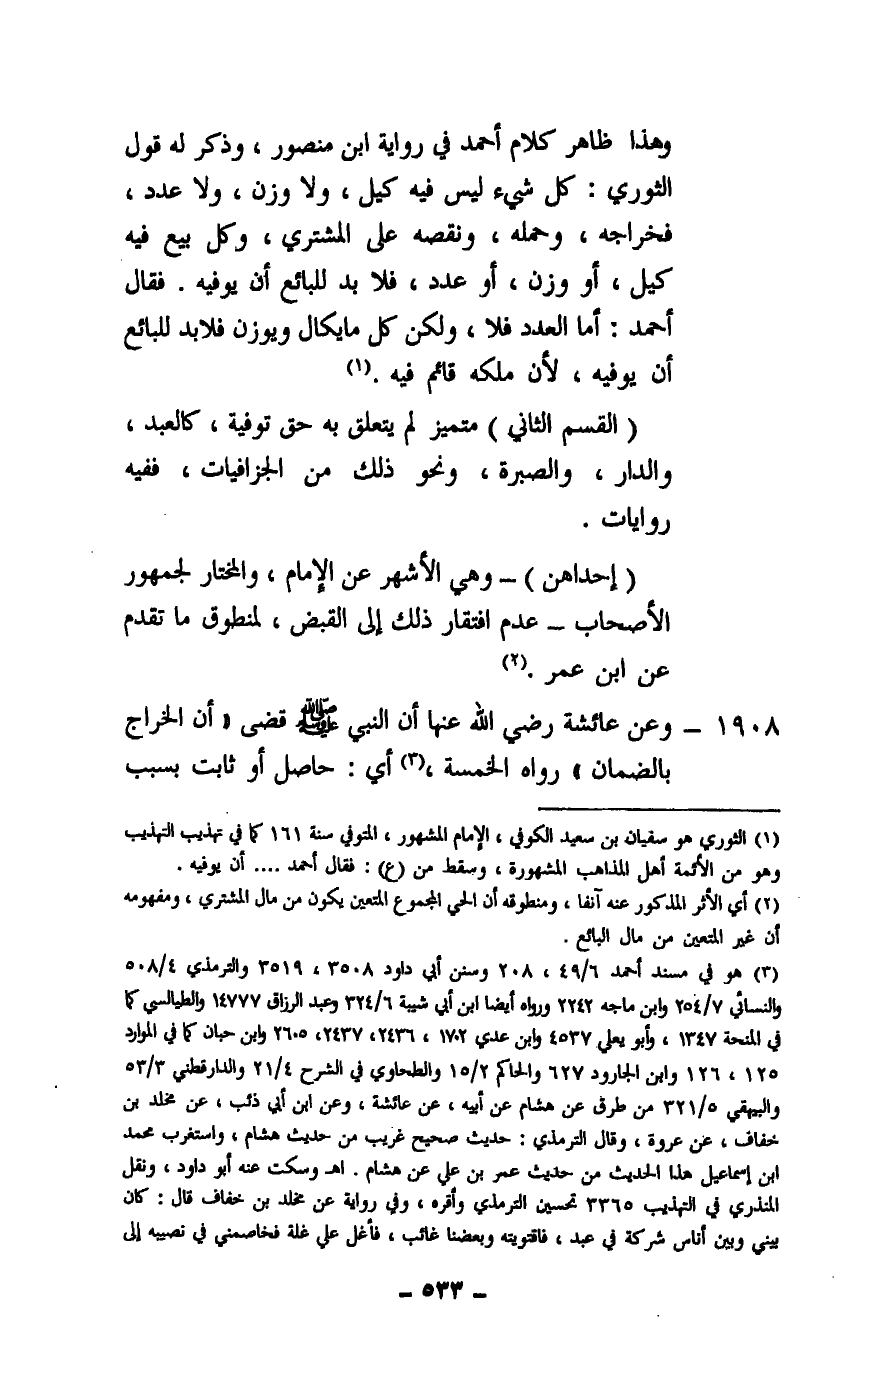 وهذا ظاهر كلام أحمد في رواية ابن منصور ، وذكر له قول
الثوري : كل شيء ليس فيه كيل ، ولا وزن ، ولا عدد ،
فخراجه ، وحمله ، ونقصه على المشتري ، وكل بيع فيه
كيل ، أو وزن ، أو عدد ، فلا بد للبائع أن يوفيه . فقال
أحمد : أما العدد فلا ، ولكن كل مايكال ويوزن فلابد للبائع
أن يوفيه ، لأن ملكه قائم فيه .(١)
( القسم الثاني ) متميز لم يتعلق به حق توفية ، كالعبد ،
والدار ، والصبرة ، ونحو ذلك من الجزافيات ، ففيه
روايات .
( إحداهن ) – وهي الأشهر عن الإمام ، والمختار لجمهور
الأصحاب – عدم افتقار ذلك إلى القبض ، لمنطوق ما تقدم
عن ابن عمر .(٢)
١٩٠٨ – وعن عائشة رضي الله عنها أن النبي ﷺ قضى « أن الخراج
بالضمان » رواه الخمسة ،(٣) أي : حاصل أو ثابت بسبب
(١) الثوري هو سفيان بن سعيد الكوفي ، الإمام المشهور ، المتوفي سنة ١٦١ كما في تهذيب التهذيب
وهو من الأئمة أهل المذاهب المشهورة ، وسقط من (ع) : فقال أحمد .... أن يوفيه .
(٢) أي الأثر المذكور عنه آنفا ، ومنطوقه أن الحي المجموع المتعين يكون من مال المشتري ، ومفهومه
أن غير المتعين من مال البائع .
(٣) هو في مسند أحمد ٤٩/٦ ، ٢٠٨ وسنن أبي داود ٣٥٠٨ ، ٣٥١٩ والترمذي ٥٠٨/٤
والنسائي ٢٥٤/٧ وابن ماجه ٢٢٤٢ ورواه أيضا ابن أبي شيبة ٣٢٤/٦ وعبد الرزاق ١٤٧٧٧ والطيالسي كما
في المنحة ١٣٤٧ ، وأبو يعلي ٤٥٣٧ وابن عدي ١٧٠٢ ، ٢٤٣٦، ٢٤٣٧، ٢٦٠٥ وابن حبان كما في الموارد
١٢٥ ، ١٢٦ وابن الجارود ٦٢٧ والحاكم ١٥/٢ والطحاوي في الشرح ٢١/٤ والدارقطني ٥٣/٣
والبيهقي ٣٢١/٥ من طرق عن هشام عن أبيه ، عن عائشة ، وعن ابن أبي ذئب ، عن مخلد بن
خفاف ، عن عروة ، وقال الترمذي : حديث صحيح غريب من حديث هشام ، واستغرب محمد
ابن إسماعيل هذا الحديث من حديث عمر بن علي عن هشام . اهـ وسكت عنه أبو داود ، ونقل
المنذري في التهذيب ٣٣٦٥ تحسين الترمذي وأقره ، وفي رواية عن مخلد بن خفاف قال : كان
بيني وبين أناس شركة في عبد ، فاقتويته وبعضنا غائب ، فأغل علي غلة فخاصمني في نصيبه إلى
– ٥٣٣ –